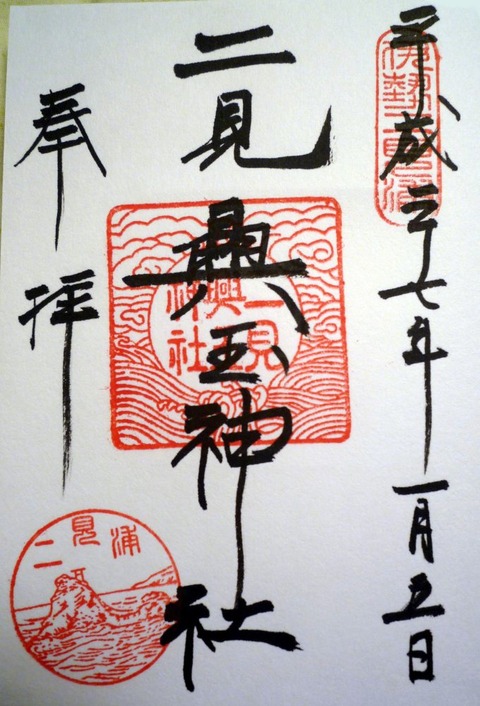 平成二十七年一月五日
伊勢二見浦
二見興玉神社
二見
興玉
神社
奉拝
二見浦